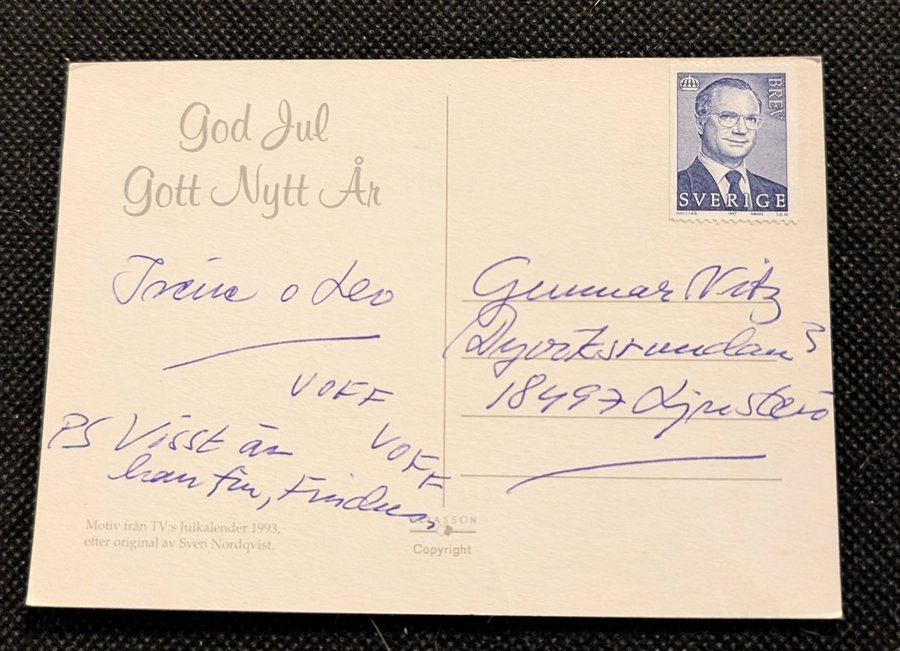 God Jul
Gott Nytt År
Irène o Leo
VOFF
VOFF
PS Visst är
han fin, Findus
Motiv från TV:s Julkalender 1993,
efter original av Sven Nordqvist.
Copyright
BREV
SVERIGE
1997
Gunnar Nitz
Dyviksrundan 3
18497 Ljusterö